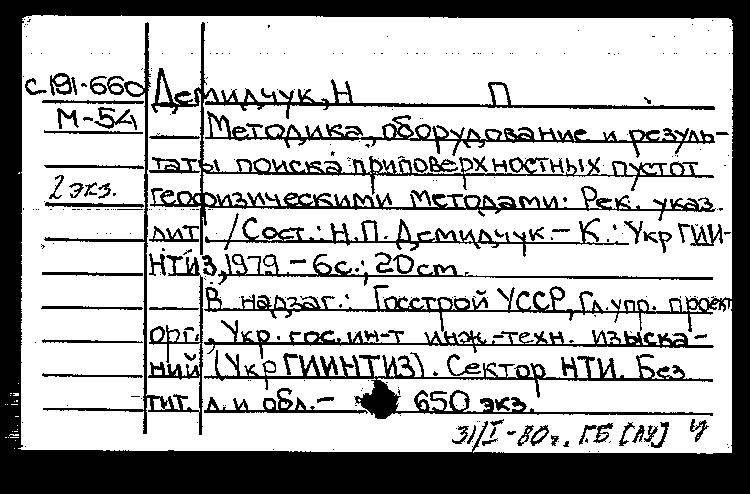 с191-660
М-54
2 экз.
Демидчук, Н П
Методика, оборудование и резуль-
таты поиска приповерхностных пустот
геофизическими методами: Рек. указ.
лит. / Сост.: Н.П. Демидчук. - К.: УкрГИИ-
НТИЗ, 1979. - 6с.; 20 cm.
В надзаг.: Госстрой УССР, Гл. упр. проект.
орг., Укр. гос. ин-т инж.-техн. изыска-
ний (УкрГИИНТИЗ). Сектор НТИ. Без
тит. л. и обл. - 650 экз.
31/I-80г. ГБ [ЛУ] у